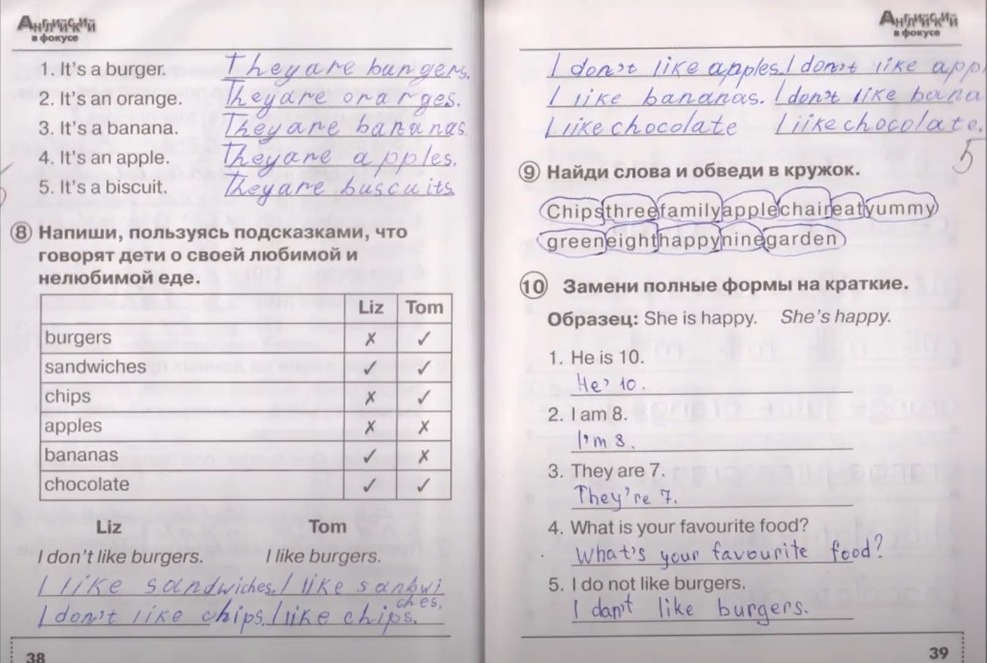 Английский
в фокусе
1. It's a burger. They are bungers.
2. It's an orange. They are oranges.
3. It's a banana. They are bananas
4. It's an apple. They are apples.
5. It's a biscuit. They are buscuits
8 Напиши, пользуясь подсказками, что
говорят дети о своей любимой и
нелюбимой еде.
Liz Tom
burgers ✗ ✓
sandwiches ✓ ✓
chips ✗ ✓
apples ✗ ✗
bananas ✓ ✗
chocolate ✓ ✓
Liz Tom
I don't like burgers. I like burgers.
I like sandwiches. I like sanbwi
ches.
I don't like chips. I like chips.
38
Английский
в фокусе
I don't like apples. I don't like app
I like bananas. I don't like bana
I like chocolate I like chocolate.
5
9 Найди слова и обведи в кружок.
Chipsthreefamilyapplechaireatyummy
greeneighthappyninegarden
10 Замени полные формы на краткие.
Образец: She is happy. She's happy.
1. He is 10.
He' 10.
2. I am 8.
I'm 8.
3. They are 7.
They're 7.
4. What is your favourite food?
What's your favourite food?
5. I do not like burgers.
I dan't like burgers.
39